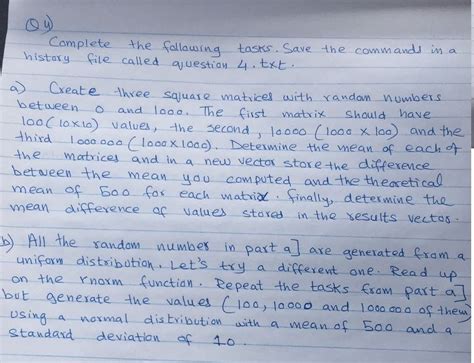 Q4)
Complete the following tasks. Save the commands in a
history file called question 4.txt.
a) Create three square matrices with random numbers
between 0 and 1000. The first matrix should have
100 (10x10) values, the second, 10000 (1000 x 100) and the
third 1000000 (1000x1000). Determine the mean of each of
the matrices and in a new vector store the difference
between the mean you computed and the theoretical
mean of 500 for each matrix. finally, determine the
mean difference of values stored in the results vector.
b) All the random number in part a] are generated from a
uniform distribution. Let's try a different one. Read up
on the rnorm function. Repeat the tasks from part a]
but generate the values (100, 10000 and 1000000 of them)
using a normal distribution with a mean of 500 and a
standard deviation of 10.